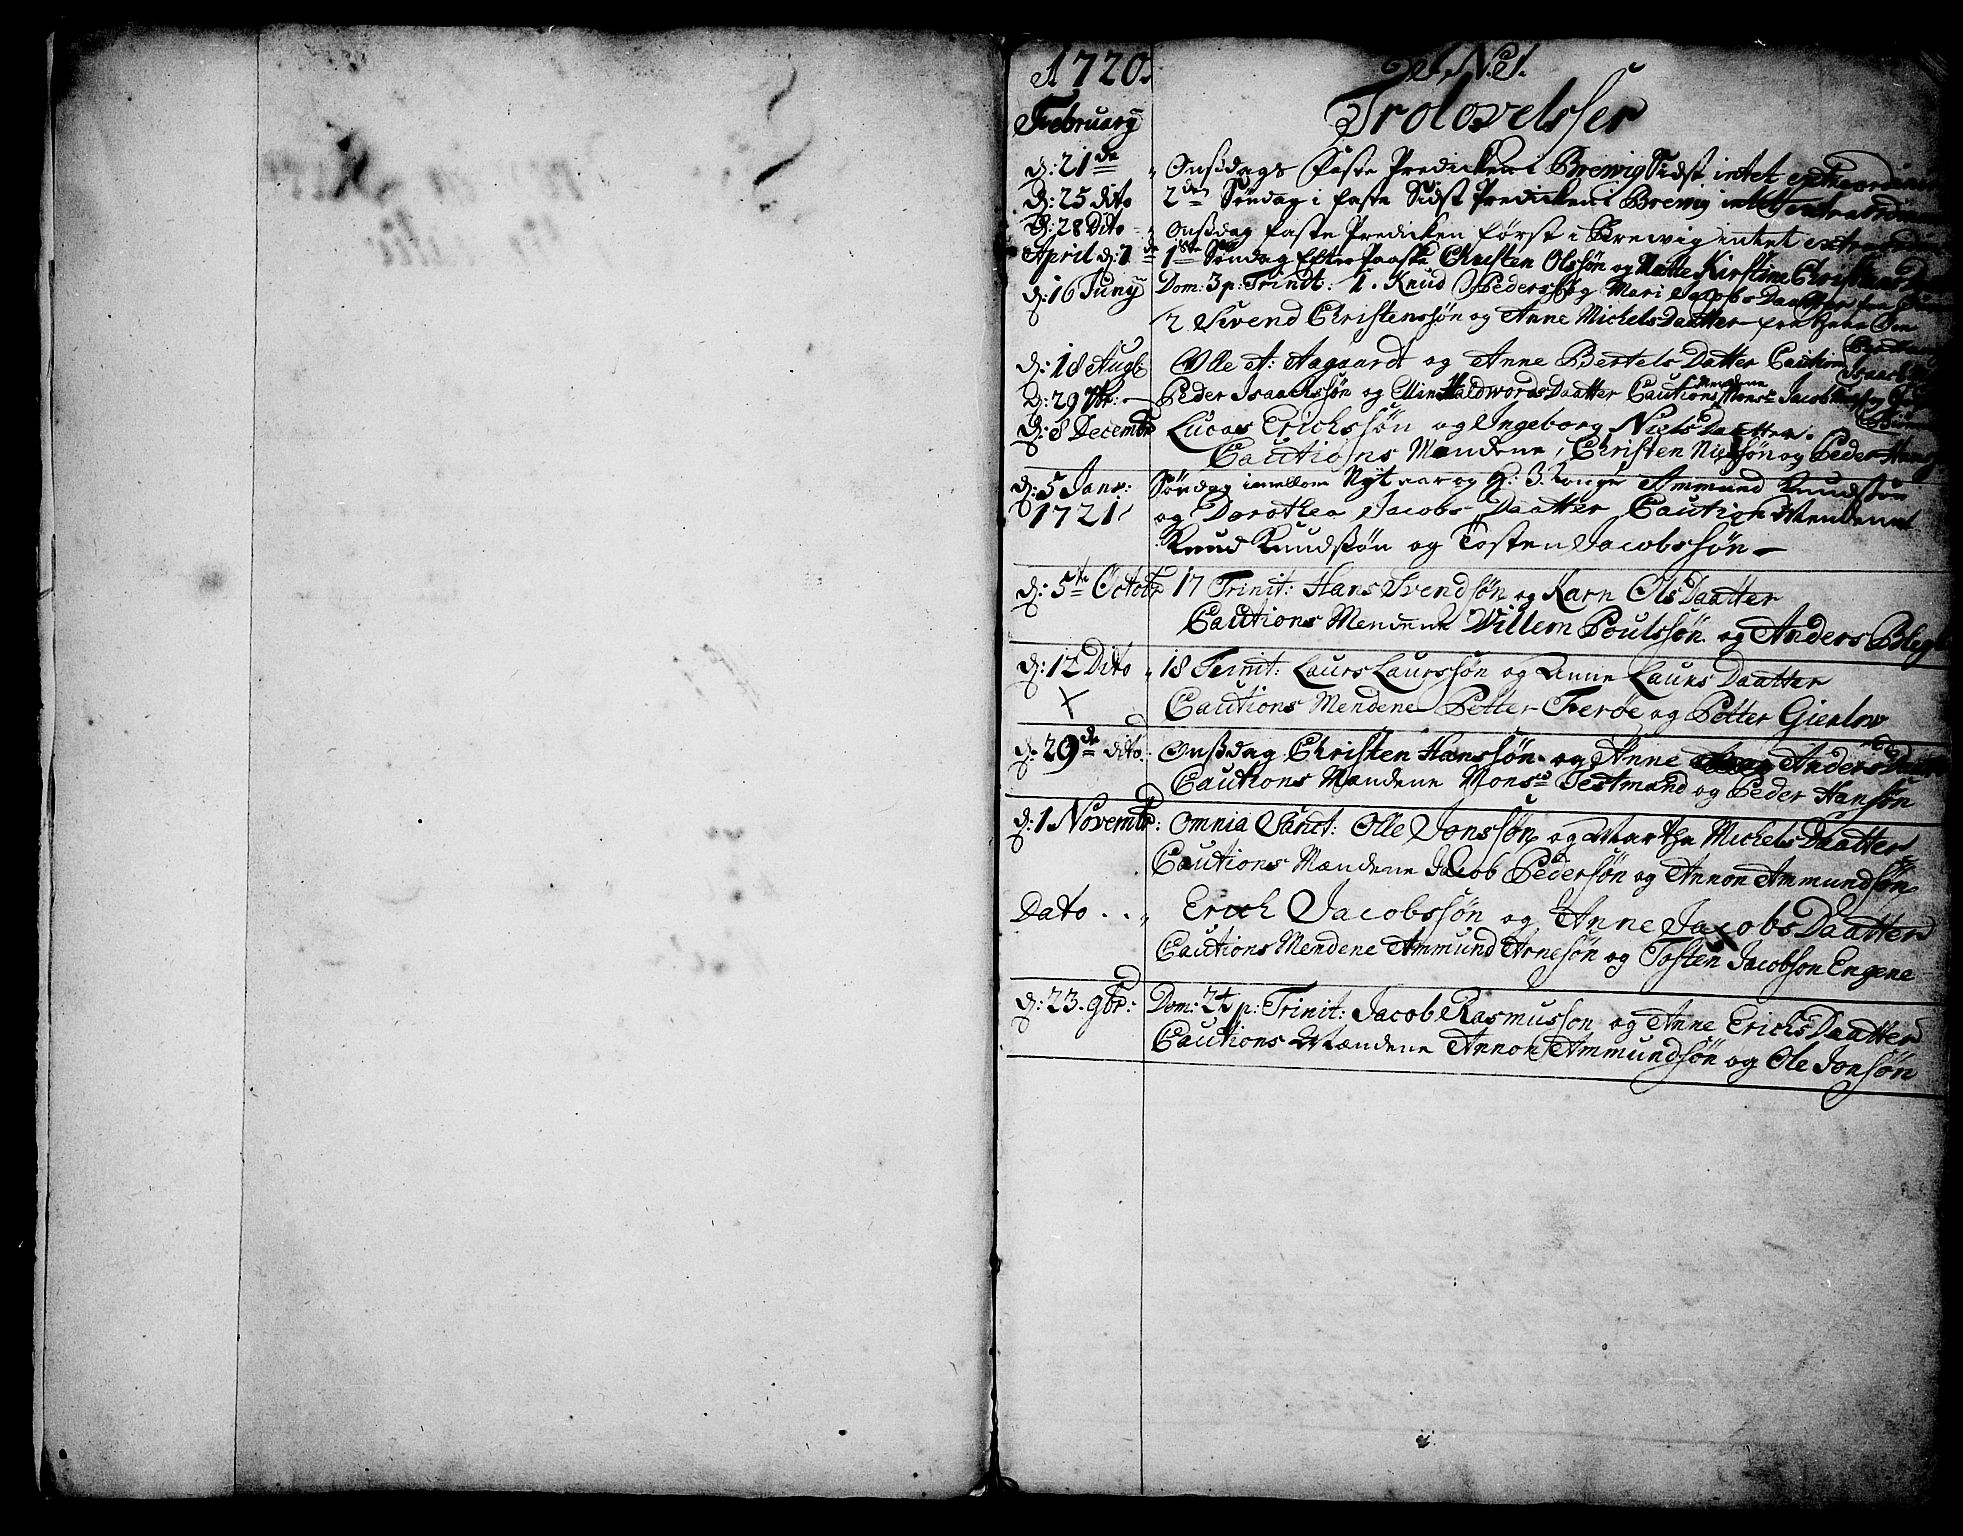 A 1720.
No 1.
February
Trolovelsser
d: 21de Onsdags faste Predicken i Brewig Sidst intet extraordinair
d: 25 dito 2den Søndag i faste Sidst Predicken i Brewig intet extraordinair
d: 28 Dito Onsdag faste Predicken først i Brewig intet extraordinair
April d: 7de 1ste Søndag Efter Paaske Christen Olssøn og Mætte Kirstine Christens
d: 16 Juny Dom: 3 p: Trinit: 1. Knud Pederssøn og Mari Jacobs Daatter
2 Svend Christenssøn og Anne Michels Daatter
d: 18 Augt Olle A: Aagaardt og Anne Bertels Datter Caution
d: 29 7br: Peder Isaachssøn og Ellin Haldwords Daatter Cautions Mendene Monsr Jacob
d: 8 Decembr Lucas Erichssøn og Ingeborg Niels Daatter.
Cautions Mændene, Christen Nielssøn og Peder Hans
d: 5 Janr: Søndag imellom Nyt aar og H: 3 Konge Ammund Knudssøn
1721 og Dorothea Jacobs Daatter Caution Mendene
Knud Knudssøn og Tosten Jacobssøn
d: 5te Octobr 17 Trinit: Hans Svendsøn og Karn Ols Daatter
Cautions Mendene Willem Poulssøn og Anders Blegb
d: 12 Dito 18 Trinit: Laurs Laurssøn og Anne Laurs Daatter
Cautions Mendene Petter Ferøe og Petter Gierløw
d: 29de dito. Onsdag Christen Hanssøn og Anne Anders Daatter
Cautions Mændene Monsr Testmand og Peder Hansøn
d: 1 Novembr: Omnia Sanct: Olle Jonssøn og Martha Michels Daatter
Cautions Mændene Jacob Pedersøn og Annon Ammundsøn
Dato Erich Jacobssøn og Anne Jacobs Daatter
Cautions Mendene Ammund Arnesøn og Tosten Jacobson Engene
d: 23. 9br: Dom: 24 p: Trinit: Jacob Rasmusson og Anne Erichs Daatter
Cautions Mændene Annon Ammundsøn og Ole Jonsøn